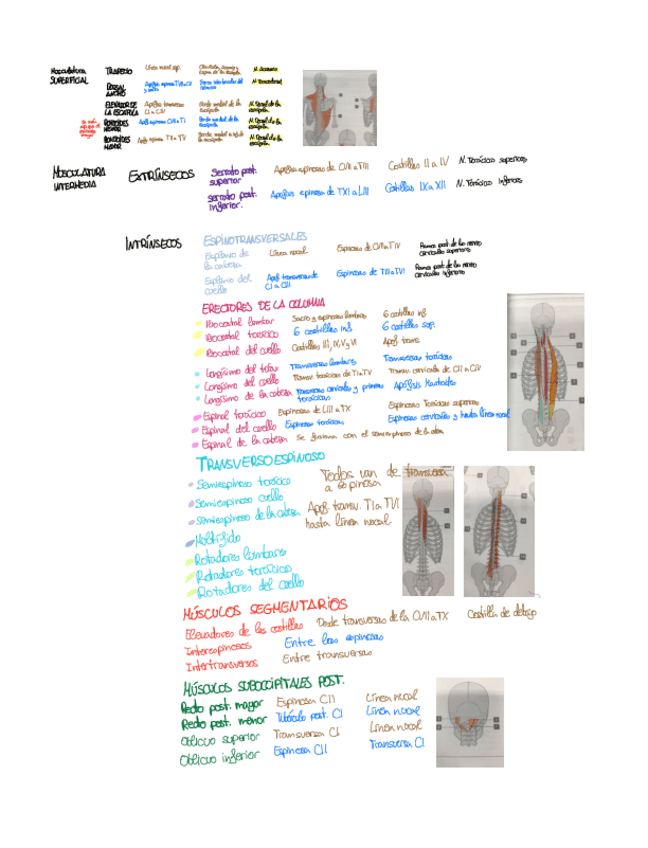 MUSCULATURA SUPERFICIAL
TRAPECIO Línea nucal sup. N. Accesorio
DORSAL ANCHO N. Toracodorsal
ELEVADOR DE LA ESCÁPULA Apófisis transversas CI a CIV N. Dorsal de la escápula
ROMBOIDES MENOR N. Dorsal de la escápula
ROMBOIDES MAYOR N. Dorsal de la escápula
MUSCULATURA INTERMEDIA
EXTRÍNSECOS
Serrato post. superior Apófisis espinosas de CVII a TIII Costillas II a IV N. Torácicos superiores
Serrato post. inferior. Apófisis espinosa de TXI a LIII Costillas IX a XII N. Torácico inferiores
INTRÍNSECOS
ESPINOTRANSVERSALES
Esplenio de la cabeza Línea nucal Espinosas de CVII a TIV Ramos post. de los nervios cervicales superiores
Esplenio del cuello Apóf transversas de CI a CII Espinosas de TIII a TVI Ramos post. de los nervios cervicales inferiores
ERECTORES DE LA COLUMNA
Iliocostal lumbar Sacro y espinosas lumbares 6 costillas inf.
Iliocostal torácico 6 costillas inf. 6 costillas sup.
Iliocostal del cuello Costillas III, IV, V y VI Apóf. trans.
Longísimo del tórax Transversas lumbares Transversas torácicas
Longísimo del cuello Transv torácicas de TI a TV Transv cervicale de CII a CIV
Longísimo de la cabeza Transversas cervicales y primeras torácicas Apófisis Mastoides
Espinal torácico Espinosas de LIII a TX Espinosas Torácicas superiores
Espinal del cuello Espinosas torácicas Espinosas cervicales y hasta línea nucal
Espinal de la cabeza Se fusiona con el semiespinoso de la cabeza
TRANSVERSOESPINOSO
Todos van de transversa a espinosa
Semiespinoso torácico
Semiespinoso cuello
Semiespinoso de la cabeza Apóf. transv. TI a TVI hasta línea nucal
Multífido
Rotadores lumbares
Rotadores torácico
Rotadores del cuello
MÚSCULOS SEGMENTARIOS
Elevadores de las costillas Desde transversas de la CVII a TX Costilla de debajo
Interespinosos Entre las espinosas
Intertransversos Entre transversas
MÚSCULOS SUBOCCIPITALES POST.
Recto post. mayor Espinosa CII Línea nucal
Recto post. menor Tubérculo post. CI Línea nucal
Oblicuo superior Transversa CI Línea nucal
Oblicuo inferior Espinosa CII Transversa CI